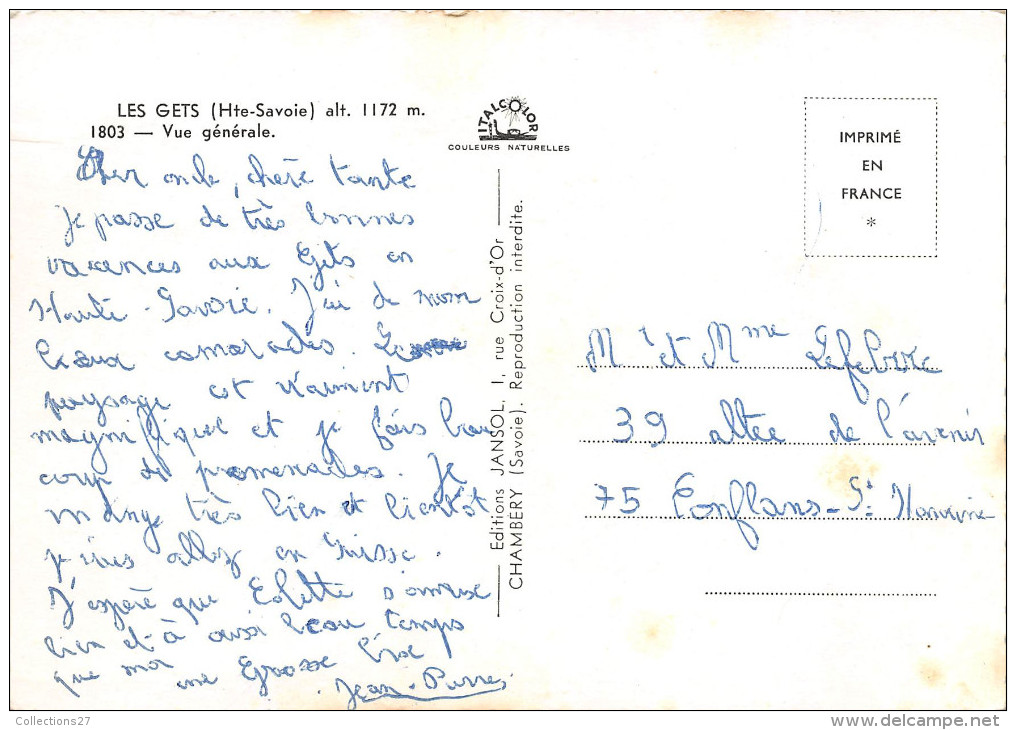 LES GETS (Hte-Savoie) alt. 1172 m.
1803 — Vue générale.
ITALCOLOR
COULEURS NATURELLES
IMPRIMÉ
EN
FRANCE
*
Cher oncle, chère tante
je passe de très bonnes
vacances aux Gets en
Haute-Savoie. J'ai de nom
breux camarades. Le
paysage est vraiment
magnifique et je fais beau
coup de promenades. Je
mange très bien et bientôt
je vais aller en Suisse.
J'espère que Colette s'amuse
bien et a aussi beau temps
que moi
une grosse bise
Jean-Pierre
Editions JANSOL, 1, rue Croix-d'Or
CHAMBÉRY (Savoie). Reproduction interdite.
Mr et Mme Lefebvre
39 allée de l'avenir
75 Conflans-Ste Honorine
Collections27
delcampe.net